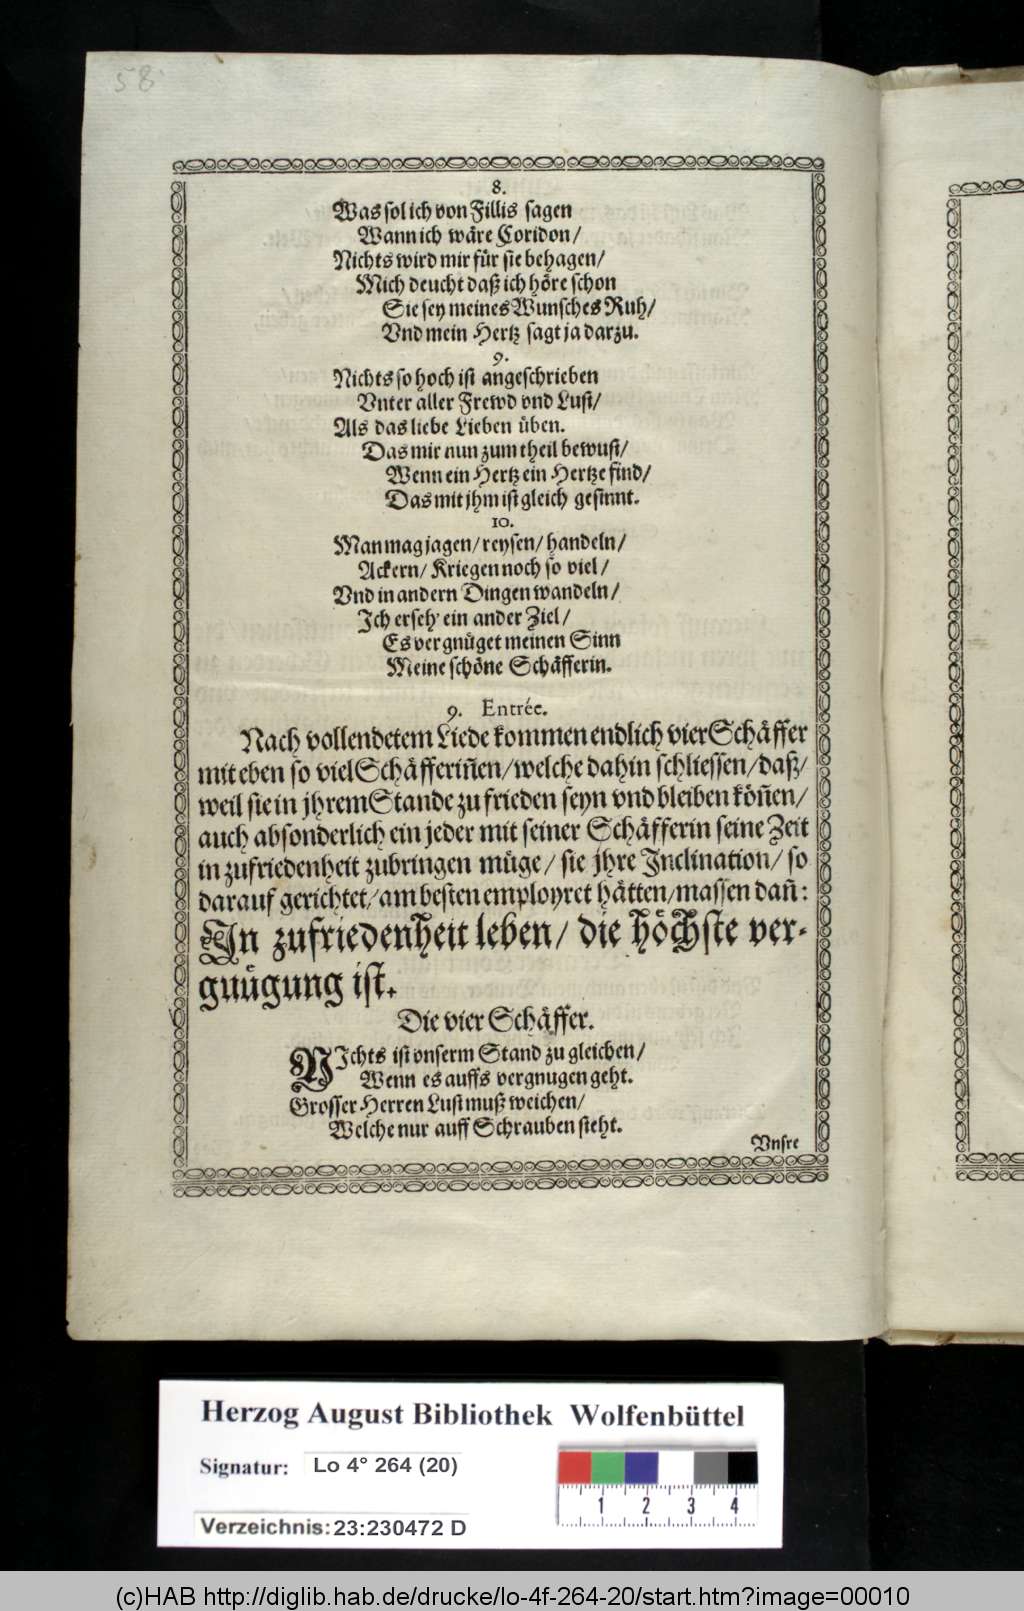 58
8.
Was sol ich von Fillis sagen
Wann ich wäre Coridon/
Nichts wird mir für sie behagen/
Mich deucht daß ich höre schon
Sie sey meines Wunsches Ruh/
Vnd mein Hertz sagt ja darzu.
9.
Nichts so hoch ist angeschrieben
Vnter aller Frewd vnd Lust/
Als das liebe Lieben üben.
Das mir nun zum theil bewust/
Wenn ein Hertz ein Hertze find/
Das mit jhm ist gleich gesinnt.
10.
Man mag jagen/ reysen/ handeln/
Ackern/ Kriegen noch so viel/
Vnd in andern Dingen wandeln/
Ich erseh' ein ander Ziel/
Es vergnüget meinen Sinn
Meine schöne Schäfferin.
9. Entrée.
Nach vollendetem Liede kommen endlich vier Schäffer
mit eben so viel Schäfferiñen/ welche dahin schliessen/ daß/
weil sie in jhrem Stande zu frieden seyn vnd bleiben köñen/
auch absonderlich ein jeder mit seiner Schäfferin seine Zeit
in zufriedenheit zubringen müge/ sie jhre Inclination/ so
darauf gerichtet/ am besten employret hätten/ massen dañ:
In zufriedenheit leben/ die höchste ver-
gnügung ist.
Die vier Schäffer.
NIchts ist vnserm Stand zu gleichen/
Wenn es auffs vergnugen geht.
Grosser Herren Lust muß weichen/
Welche nur auff Schrauben steht.
Vnsre
Herzog August Bibliothek Wolfenbüttel
Signatur: Lo 4° 264 (20)
1 2 3 4
Verzeichnis: 23:230472 D
(c)HAB http://diglib.hab.de/drucke/lo-4f-264-20/start.htm?image=00010